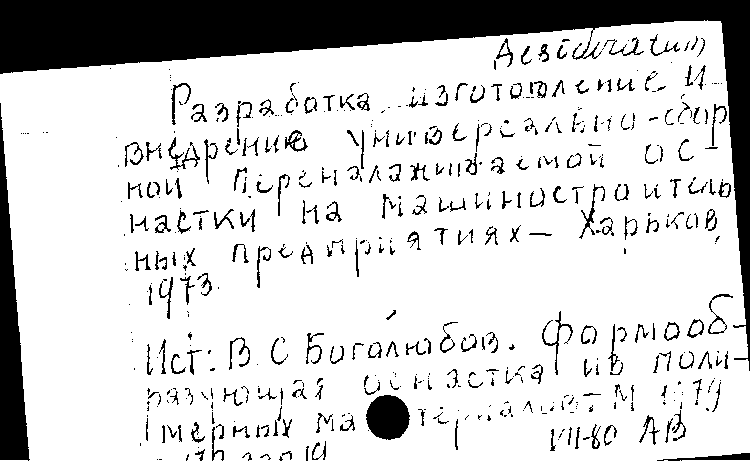 Desideratum
Разработка, изготовление и
внедрение универсально-сбор
ной переналаживаемой ос-
настки на машиностроитель
ных предприятиях – Харьков,
1973.
Ист: В.С Боголюбов. Формооб-
разующая оснастка из поли-
мерных материалов М 1979
VII-80 АВ